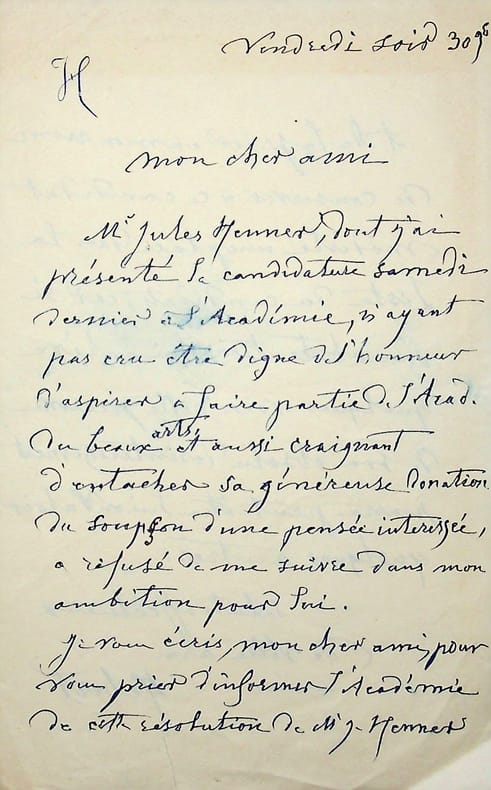 Vendredi soir 30 9b
H
mon cher ami
Mr Jules Henner, dont j'ai
présenté la candidature samedi
dernier à l'Académie, n'ayant
pas cru être digne de l'honneur
d'aspirer à faire partie de l'Acad.
des beaux arts, et aussi craignant
d'entacher sa généreuse donation
du soupçon d'une pensée interessée,
a refusé de me suivre dans mon
ambition pour lui.
Je vous écris, mon cher ami, pour
vous prier d'informer l'Académie
de cette résolution de Mr J. Henner